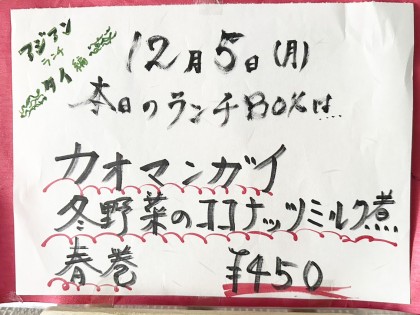 アジアン
ランチ
タイ編
12月5日(月)
本日のランチBOXは…
カオマンガイ
冬野菜のココナッツミルク煮
春巻 ¥450